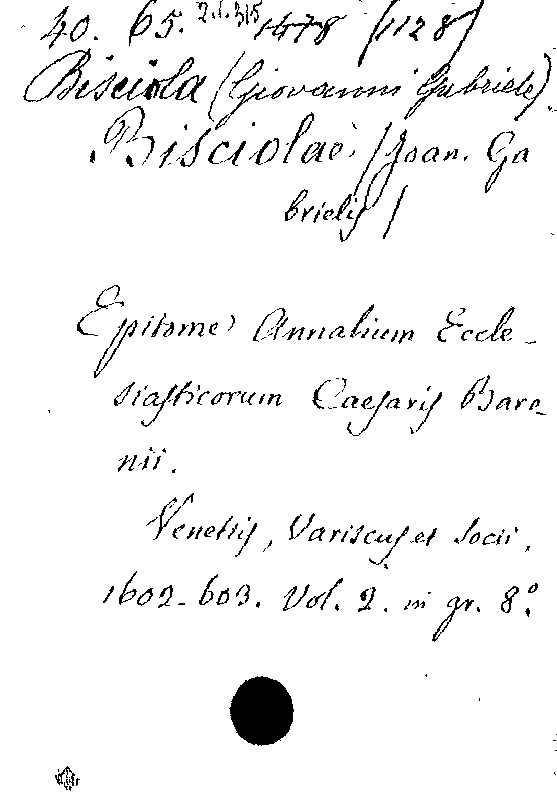 40. 65. 1478 (1128)
Bisciola (Giovanni Gabriele).
Bisciolae (Joan. Ga
brielis)
Epitome Annalium Eccle-
siasticorum Caesaris Baro-
nii.
Venetiis, Variscus et Socii,
1602-603. Vol. 2. in gr. 8.°